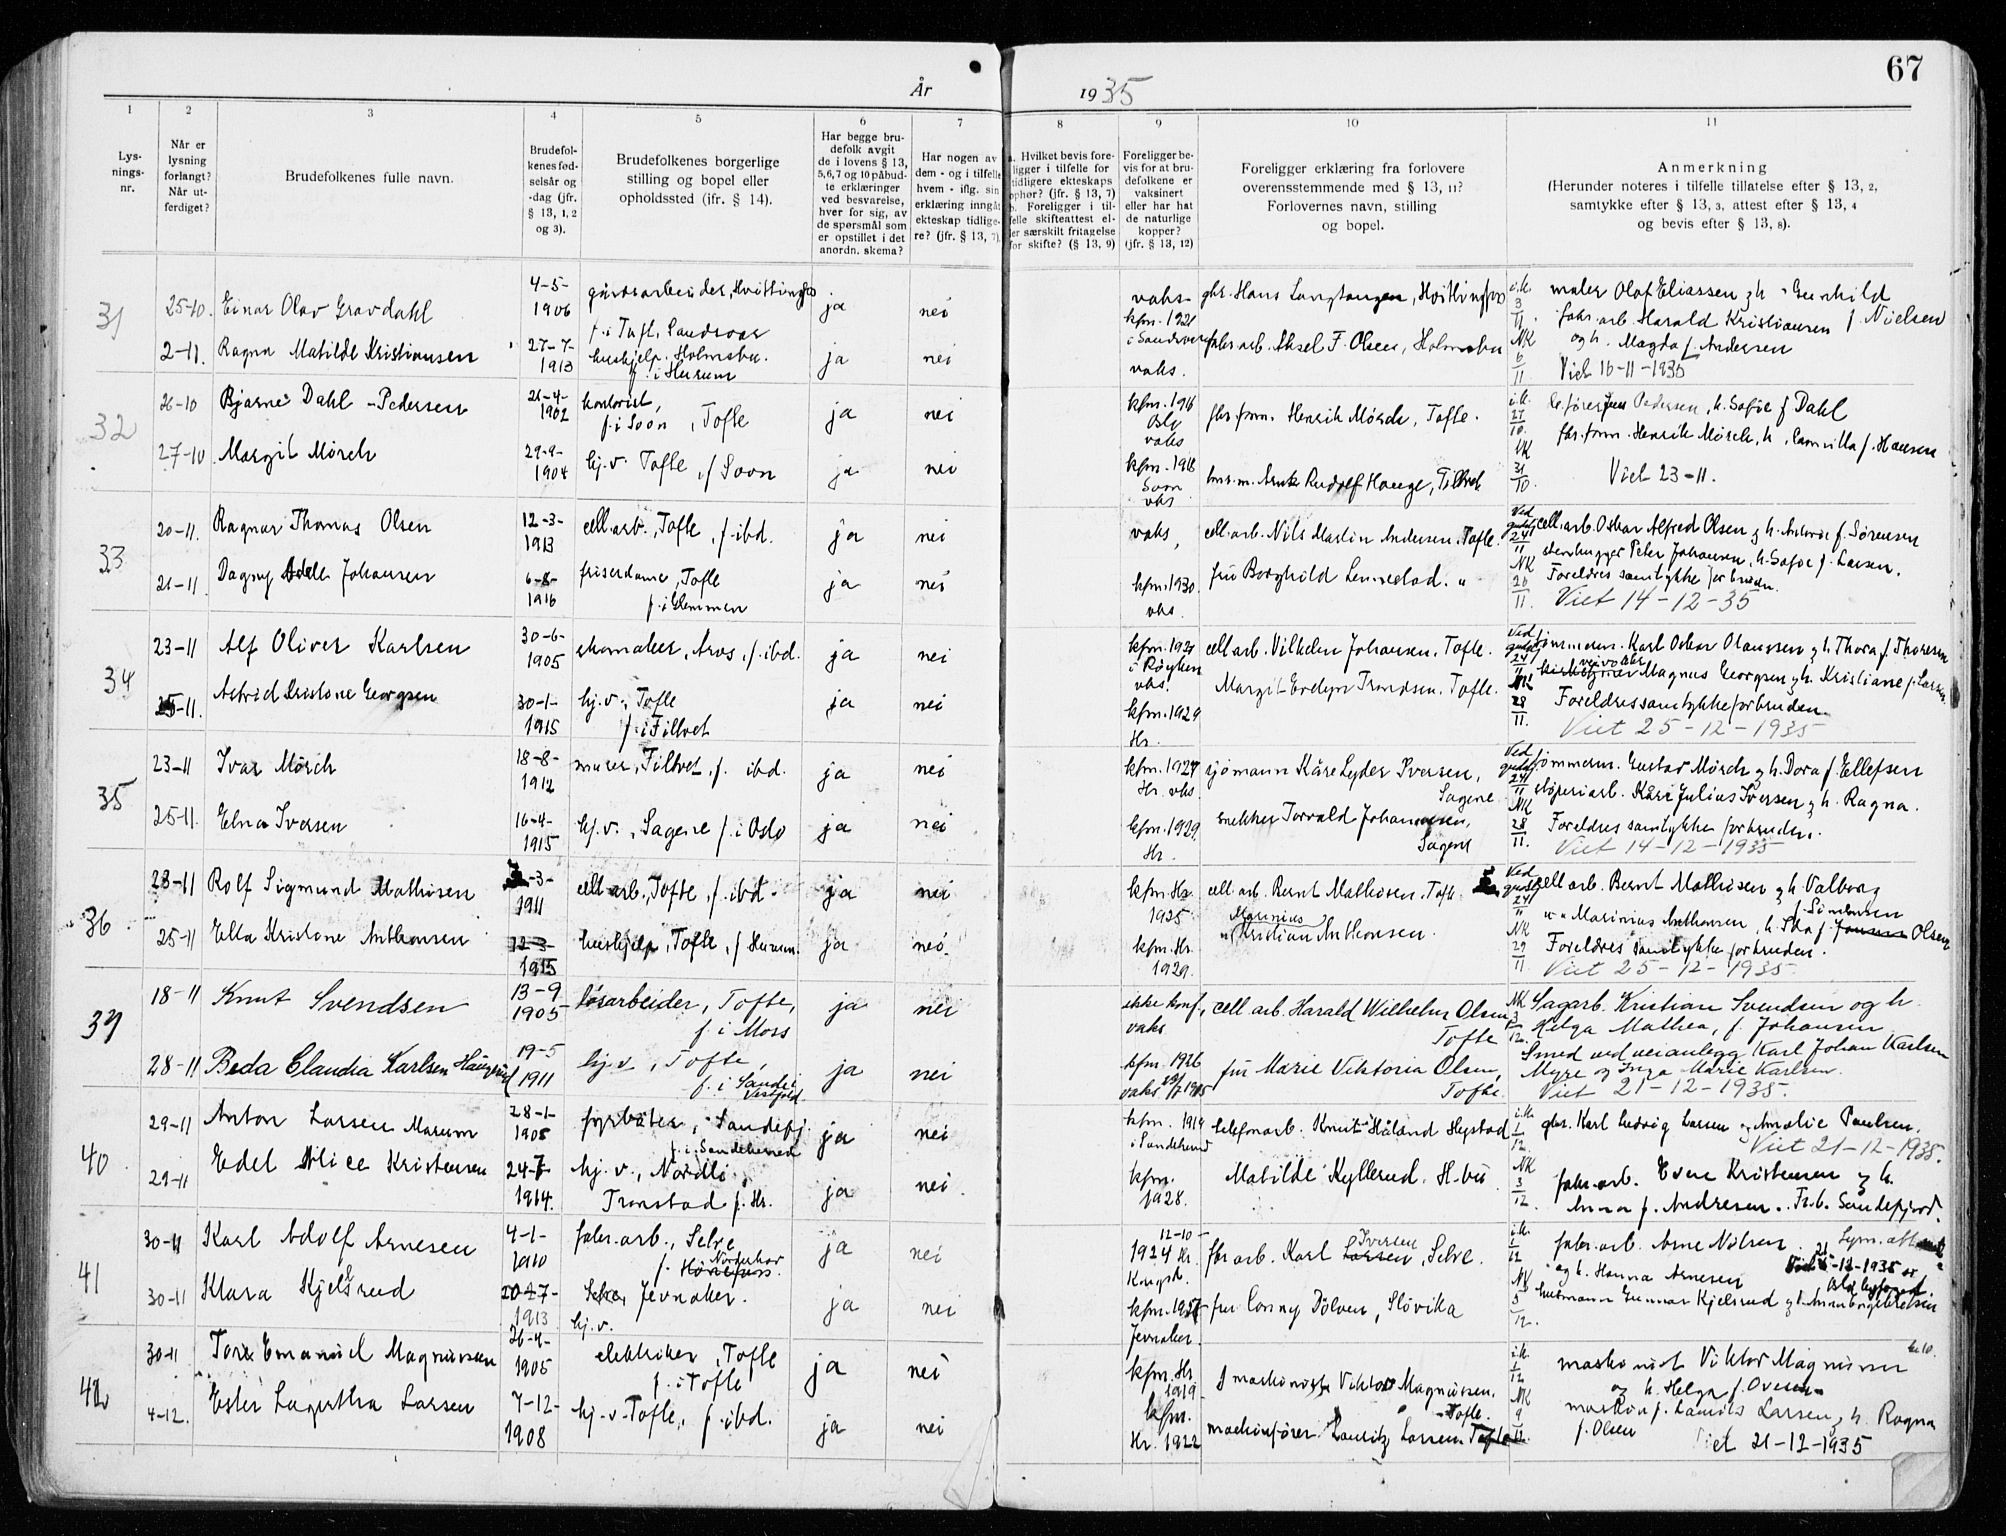 67
År 1935
1 2 3 4 5 6 7 8 9 10 11
Lysnings-nr.
Når er lysning forlangt? Når utferdiget?
Brudefolkenes fulle navn.
Brudefolkenes fødselsår og -dag (jfr. § 13, 1, 2 og 3).
Brudefolkenes borgerlige stilling og bopel eller opholdssted (ifr. § 14).
Har begge brudefolk avgit de i lovens § 13, 5,6,7 og 10 påbudte erklæringer ved besvarelse, hver for sig, av de spørsmål som er opstillet i det anordn. skema?
Har nogen av dem - og i tilfelle hvem - iflg. sin erklæring inngåt ekteskap tidligere? (jfr. § 13, 7).
a. Hvilket bevis foreligger i tilfelle for tidligere ekteskaps ophør? (jfr. § 13, 7) b. Foreligger i tilfelle skifteattest eller særskilt fritagelse for skifte? (§ 13, 9)
Foreligger bevis for at brudefolkene er vaksinert eller har hat de naturlige kopper? (jfr. § 13, 12)
Foreligger erklæring fra forlovere overensstemmende med § 13, 11? Forlovernes navn, stilling og bopel.
Anmerkning (Herunder noteres i tilfelle tillatelse efter § 13, 2, samtykke efter § 13, 3, attest efter § 13, 4 og bevis efter § 13, 8).
31 25-10. Einar Olav Gravdahl 4-5-1906 gårdsarbeider, ja nei vaks kfm. 1921 i Sandsvær gbr. Hans Langtangen, maler Olaf Eliassen og h. Gunhild f. Nielsen
2-11. Ragna Matilde Kristiansen 27-7-1913 hushjelp. Holmsbu. f. i Hurum ja nei vaks. fabr. arb. Aksel F. Olsen, Holmsbu fabr. arb. Harald Kristiansen og h. Magda f. Andersen
Viet 16-11-1935
32 26-10 Bjarne Dahl-Pedersen 26-4-1902 kontorist, f. i Soon, Tofte ja nei kfm. 1916 Oslo vaks fbr. form. Henrik Mørch, Tofte. Pedersen, h. Sofie f. Dahl
27-10 Margit Mørch 29-9-1904 hj. v. Tofte, f. Soon ja nei kfm. 1918 Soon vks Rudolf Hauge, Filtvet fbr. form. Henrik Mørch, h. Camilla f. Hansen
Viet 23-11.
33 20-11. Ragnar Thomas Olsen 12-3-1913 cell. arb., Tofte, f. ibd. ja nei vaks, cell. arb. Nils Martin Andersen, Tofte. cell. arb. Oskar Alfred Olsen og h. f. Sørensen
21-11 Dagny Johansen 6-8-1916 friserdame, Tofte f. i Glemmen ja nei kfm. 1930. vks. frk Borghild Lennestad. " stenhugger Peter Johansen, h. Sofie f. Larsen.
Foreldres samtykke for bruden.
Viet 14-12-35
34 23-11 Alf Oliver Karlsen 30-6-1905 skomaker, Aros, f. ibd. ja nei kfm. 1921 i Røyken vks. cell arb. Vilhelm Johansen, Tofte. tømmerm. Karl Oskar Olaussen og h. Thora f. Thoresen
25-11. Astrid Kristine Georgsen 30-1-1915 hj. v., Tofte f. i Filtvet ja nei kfm. 1929 Hr. Margit Evelyn Trondsen, Tofte. veivokter Magnus Georgsen og h. Kristiane f. Larsen
Foreldres samtykke for bruden.
Viet 25-12-1935
35 23-11 Ivar Mørch 18-8-1912 murer, Filtvet, f. ibd. ja nei kfm. 1927 Hr. vks sjømann Kåre Lyder Iversen, Sagene tømmerm. Gustav Mørch og h. Dora f. Ellefsen
25-11. Elna Iversen 16-4-1915 hj. v., Sagene f. i Oslo ja nei kfm. 1929. Hr. snekker Torvald Johannesen, Sagene støperiarb. Kåre Julius Iversen og h. Ragna.
Foreldres samtykke for bruden.
Viet 14-12-1935
36 23-11 Rolf Sigmund Mathisen -3-1911 cell. arb., Tofte, f. ibd. ja nei kfm. Hr. 1925 cell. arb. Bernt Mathisen, Tofte cell arb. Bernt Mathisen og h. Valborg f. Simensen
25-11 Ella Kristine Anthonsen 12-3-1915 hushjelp, Tofte, f. Hurum. ja nei. kfm. Hr. 1929. Marinius Kristian Anthonsen. Marinius Anthonsen, h. Olsen
Foreldres samtykke for bruden.
Viet 25-12-1935
39 18-11 Knut Svendsen 13-9-1905 løsarbeider, Tofte, f. i Moss ja nei ikke konf., vaks cell. arb. Harald Wilhelm Olsen, Tofte Sagarb. Kristian Svendsen og h. Helga Mathea, f. Johansen
28-11 Beda Claudia Karlsen 19-5 1911 hj. v., Tofte, f. i Sande i Vestfold ja nei kfm. 1926 vaks frk Marie Viktoria Olsen, Tofte. Smed ved veianlegg Karl Johan Karlsen Myre og Inga Marie Karlsen.
Viet 21-12-1935.
40 29-11 Anton Larsen Marum 28-1-1908 fyrbøter, Sandefj. f. i Sandeherred ja nei kfm. 1919 i Sandeherred telefonarb. Knut Håland Hegstad gbr. Karl Ludvig Larsen og Amalie Paulsen.
Viet 21-12-1935.
29-11 Edel Alice Kristensen 24-7-1914. hj. v., Nordli, Tronstad f. Hr. ja nei. kfm. 1928. Matilde Kyllerud. H-bu fabr. arb. Even Kristensen og h. Anna f. Andresen. Sandefjord.
41 30-11 Karl Adolf Arnesen 4-1-1910 fabr. arb., Selve f. Norderhov ja nei 12-10-1924 Hr. Kongsb. fbr. arb. Karl Iversen, Selve. fabr. arb. Arne Nilsen og h. Hanna Arnesen
30-11 Klara Kjelsrud 7-1913 Jevnaker. hj. v. ja nei kfm. 1927 Jevnaker. fru Conny Dølven, Slovika husmann Gunnar Kjelsrud
42 30-11 Tore Emanuel Magnussen 26-4-1905 elektriker, Tofte f. i Tofte ja nei kfm. Hr. 1919 maskinist Viktor Magnussen, Tofte. maskinist Viktor Magnussen og h. Helga f. Ovesen
4-12. Ester Lagertha Larsen 7-12-1908 hj. v. Tofte, f. ibd. ja nei kfm. Hr. 1922 maskinfører Lauritz Larsen Tofte maskinf. Laurits Larsen og h. Ragna f. Olsen
Viet 21-12-1935